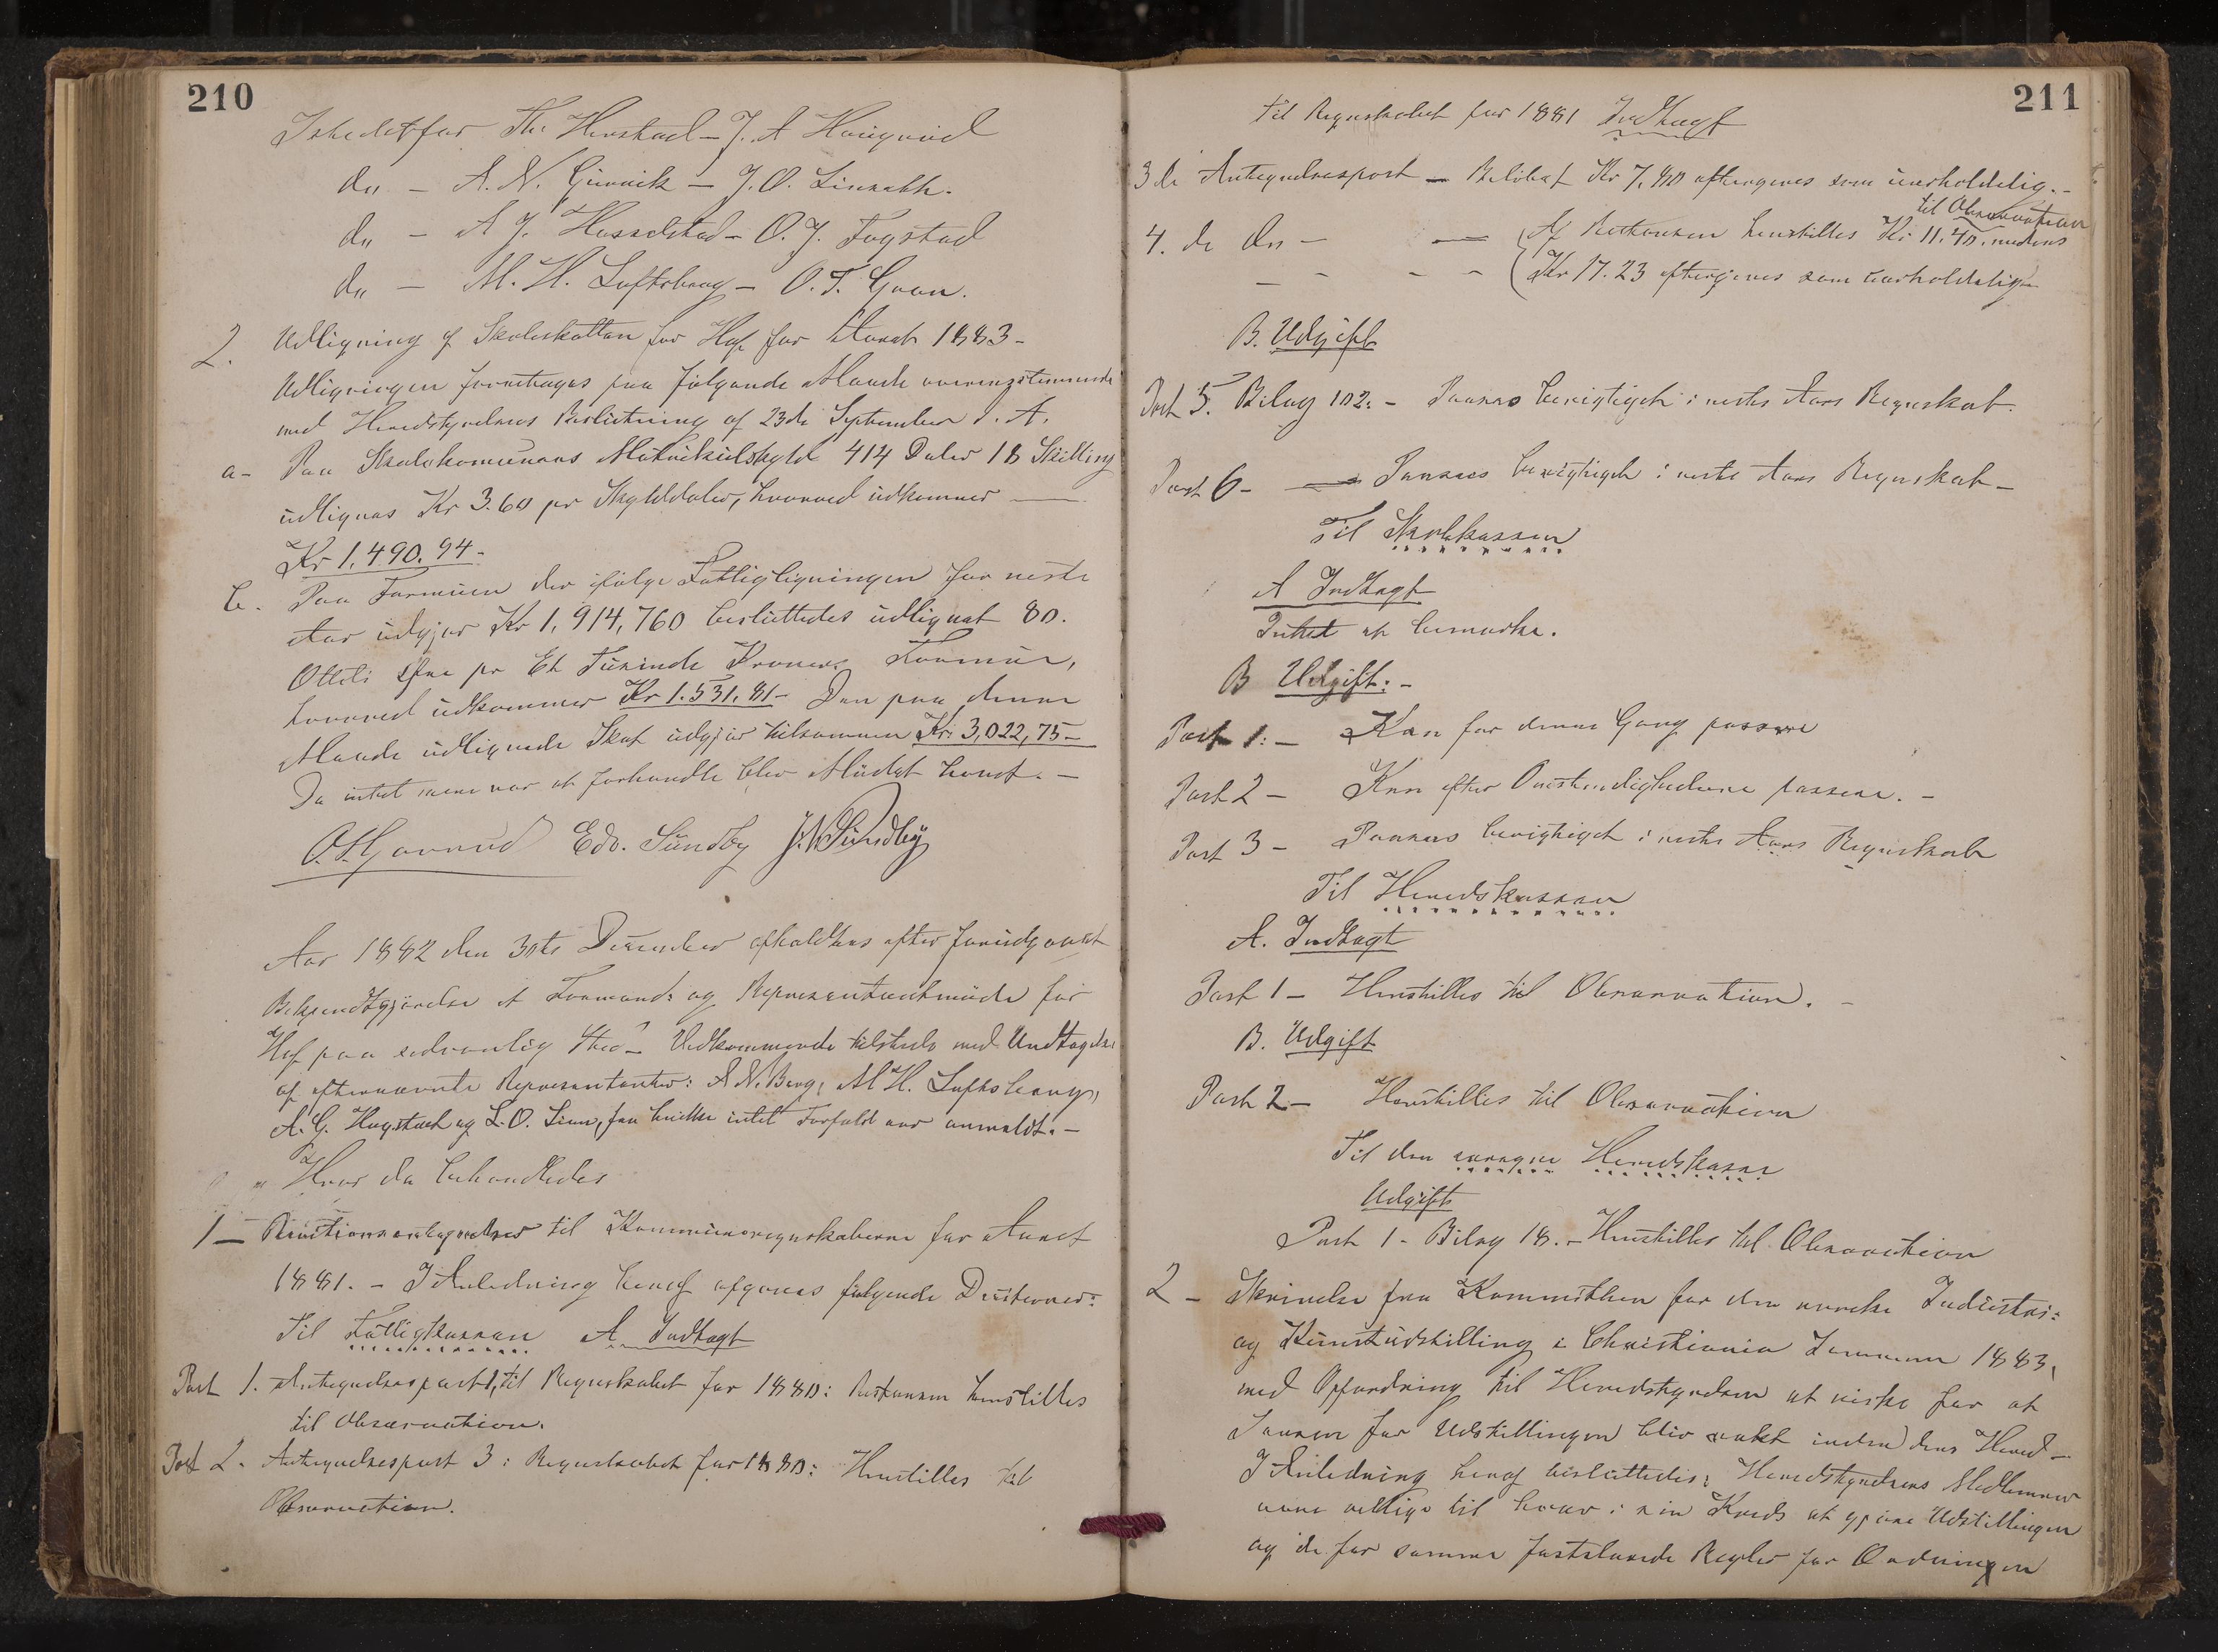 210
Istedetfor Th. Hvestad – J. A Haugerud
do – A. N. – J. O. Linnestb.
do – A J. Hasselstad – O. J. Fogstad
do – M. H. Luftsberg – O. T. Graan.
2. Udligning af Skoleskatten for Hof for Aaret 1883 –
Udligningen foretages paa følgende Maade overensstemmende
med Heredstyrelsens Beslutning af 23de September d. A.
a – Paa Skolekomunens Matrikulskyld 414 Daler 18 Skilling
udlignes Kr 3.60 pr Skylddaler, hvorved udkommer —
Kr 1,490.94 –
b. Paa Formuen der ifølge Fattigligningen for neste
Aar udgjør Kr 1,914,760 besluttedes udlignet 80.
Otteti Øre pr Et Tusinde Kroners Formue,
hvorved udkommer Kr 1.531.81 – Den paa denne
Maade udlignede Skat udgjør tilsammen Kr. 3,022,75 –
Da intet mere var at forhandle blev Mødet hævet. –
Edv. Sundby J. N. Sundby
Aar 1882 den 30te December afholdtes efter forudgaaet
Bekjendtgjørelse et Formands og Representantmøde for
Hof paa sedvanlig Sted – Vedkommende tilstede med Undtagelse
af efternævnte Representanter: A. N. Berg, M H. Luftsberg,
A. G. Hagestad og L. O. Linn, fra hvilke intet Forfald var anmeldt. –
Hvor da behandledes
1 – Revisionsantegnelser til Kommuneregnskaberne for Aaret
1881. – I Anledning heraf afgaves følgende Decisioner:
Til Fattigkassen A Indtægt
Post 1. Antegnelsespost 1, til Regnskabet for 1880: Restancen henstilles
til Observation.
Post 2. Antegnelsespost 3 i Regnskabet for 1880: Henstilles til
Observation.
211
til Regnskabet for 1881 Indtægt
3 de Antegnelsespost – Beløbet Kr 7,80 eftergives som uerholdelig. –
til Observation
4. de do – — Af Restancen henstilles Kr 11.40. medens
– – – – Kr 17.23 eftergives som uerholdelig –
B. Udgift
Post 5. Bilag 102. – Paasees berigtiget i neste Aars Regnskab.
Post 6 – — Paasees berigtiget i neste Aars Regnskab –
Til Skolekassen
A Indtægt
Intet at bemærke.
B Udgift: –
Post 1: – Kan for denne Gang passere
Post 2 – Kan efter Omstændighederne passere. –
Post 3 – Paasees berigtiget i neste Aars Regnskab
Til Heredskassen
A. Indtægt
Post 1 – Henstilles til Observation. –
B. Udgift
Post 2 – Henstilles til Observation
Til den Heredskasse
Udgift
Post 1 – Bilag 18. – Henstilles til Observation
2 – Skrivelse fra Kommitéen for den norske Industri-
og Kunstudstilling i Christiania Sommeren 1883,
med Opfordring til Heredstyrelsen at virke for at
Sansen for Udstillingen blir vakt inden dens Hered –
I Anledning heraf besluttedes: Heredstyrelsens Medlemmer
være villige til hver i sin Kreds at gjøre Udstillingen
og de for samme fastslaaede Regler for Ordningen